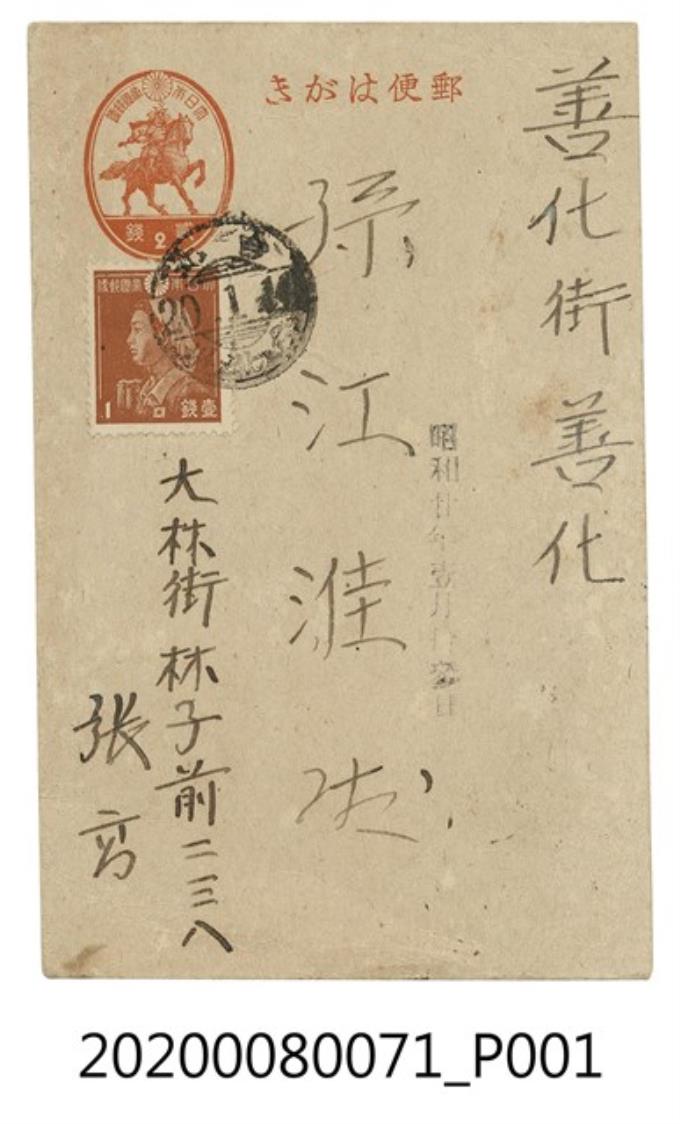 郵便はがき
大日本帝國郵便
貳 2 錢
大日本帝國郵便
1 壹錢
20.1.1
善化街善化
孫江淮
昭和廿年壹月
大林街林子前二三八
張
20200080071_P001